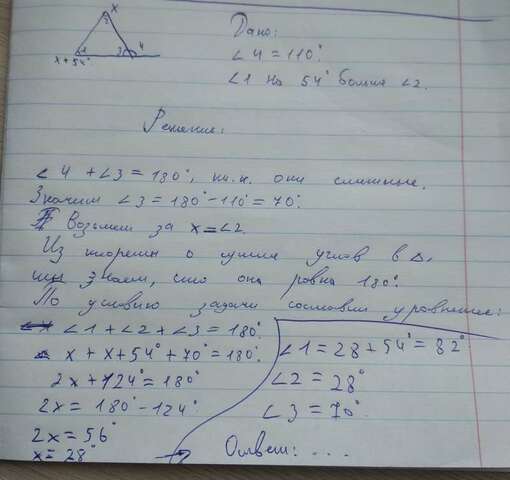 x
2
1
3
4
x + 54°
Дано:
∠4 = 110°.
∠1 на 54° больше ∠2.
Решение:
∠4 + ∠3 = 180°, т.к. они смежные.
Значит ∠3 = 180° - 110° = 70°.
Возьмем за x = ∠2.
Из теоремы о сумме углов в △,
мы знаем, что она равна 180°.
По условию задачи составим уравнение:
∠1 + ∠2 + ∠3 = 180°.
x + x + 54° + 70° = 180°.
2x + 124° = 180°
2x = 180° - 124°
2x = 56°
x = 28°
∠1 = 28 + 54° = 82°
∠2 = 28°
∠3 = 70°.
Ответ: ...